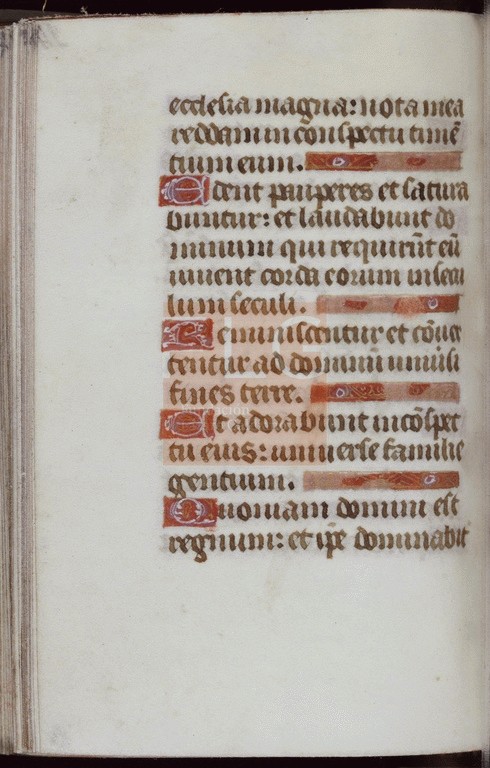 ecclesia magna: uota mea
reddam in conspectu timē
tium eum.
Edent pauperes et satura
buntur: et laudabunt do
minum qui requirūt eū
uiuent corda eorum in secu
lum seculi.
Reminiscentur et cōuer
tentur ad dominū uniūsi
fines terre.
Et adorabunt in cōspec
tu eius: uniuerse familie
gentium.
Quoniam domini est
regnum: et ipē dominabit